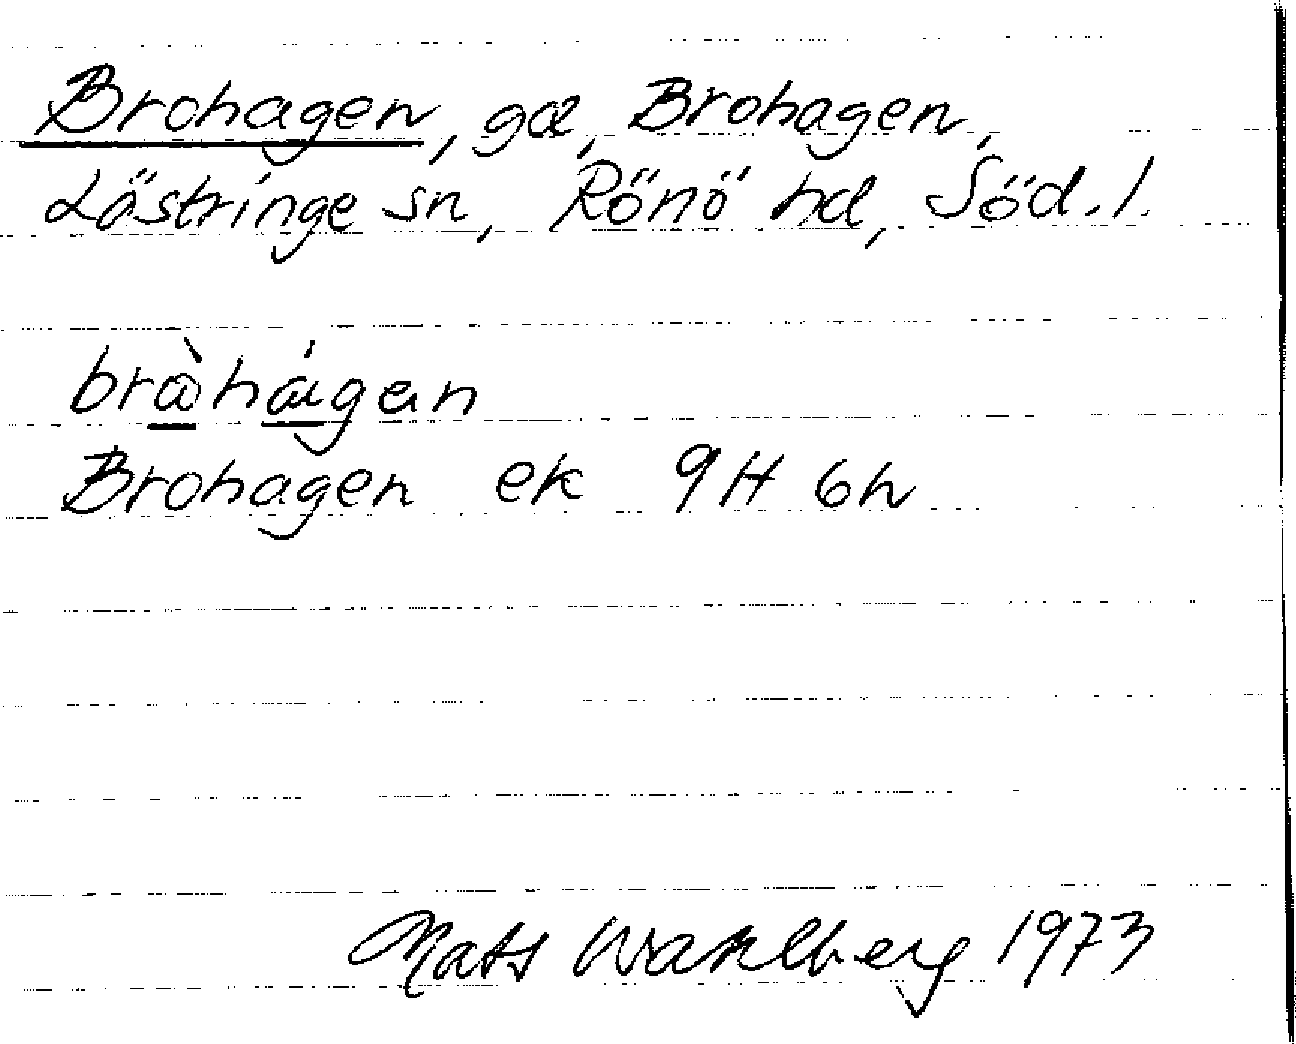 Brohagen, gd, Brohagen,
Lästringe sn, Rönö hd, Söd.l.
bròhágen
Brohagen ek 9H 6h
Mats Wahlberg 1973